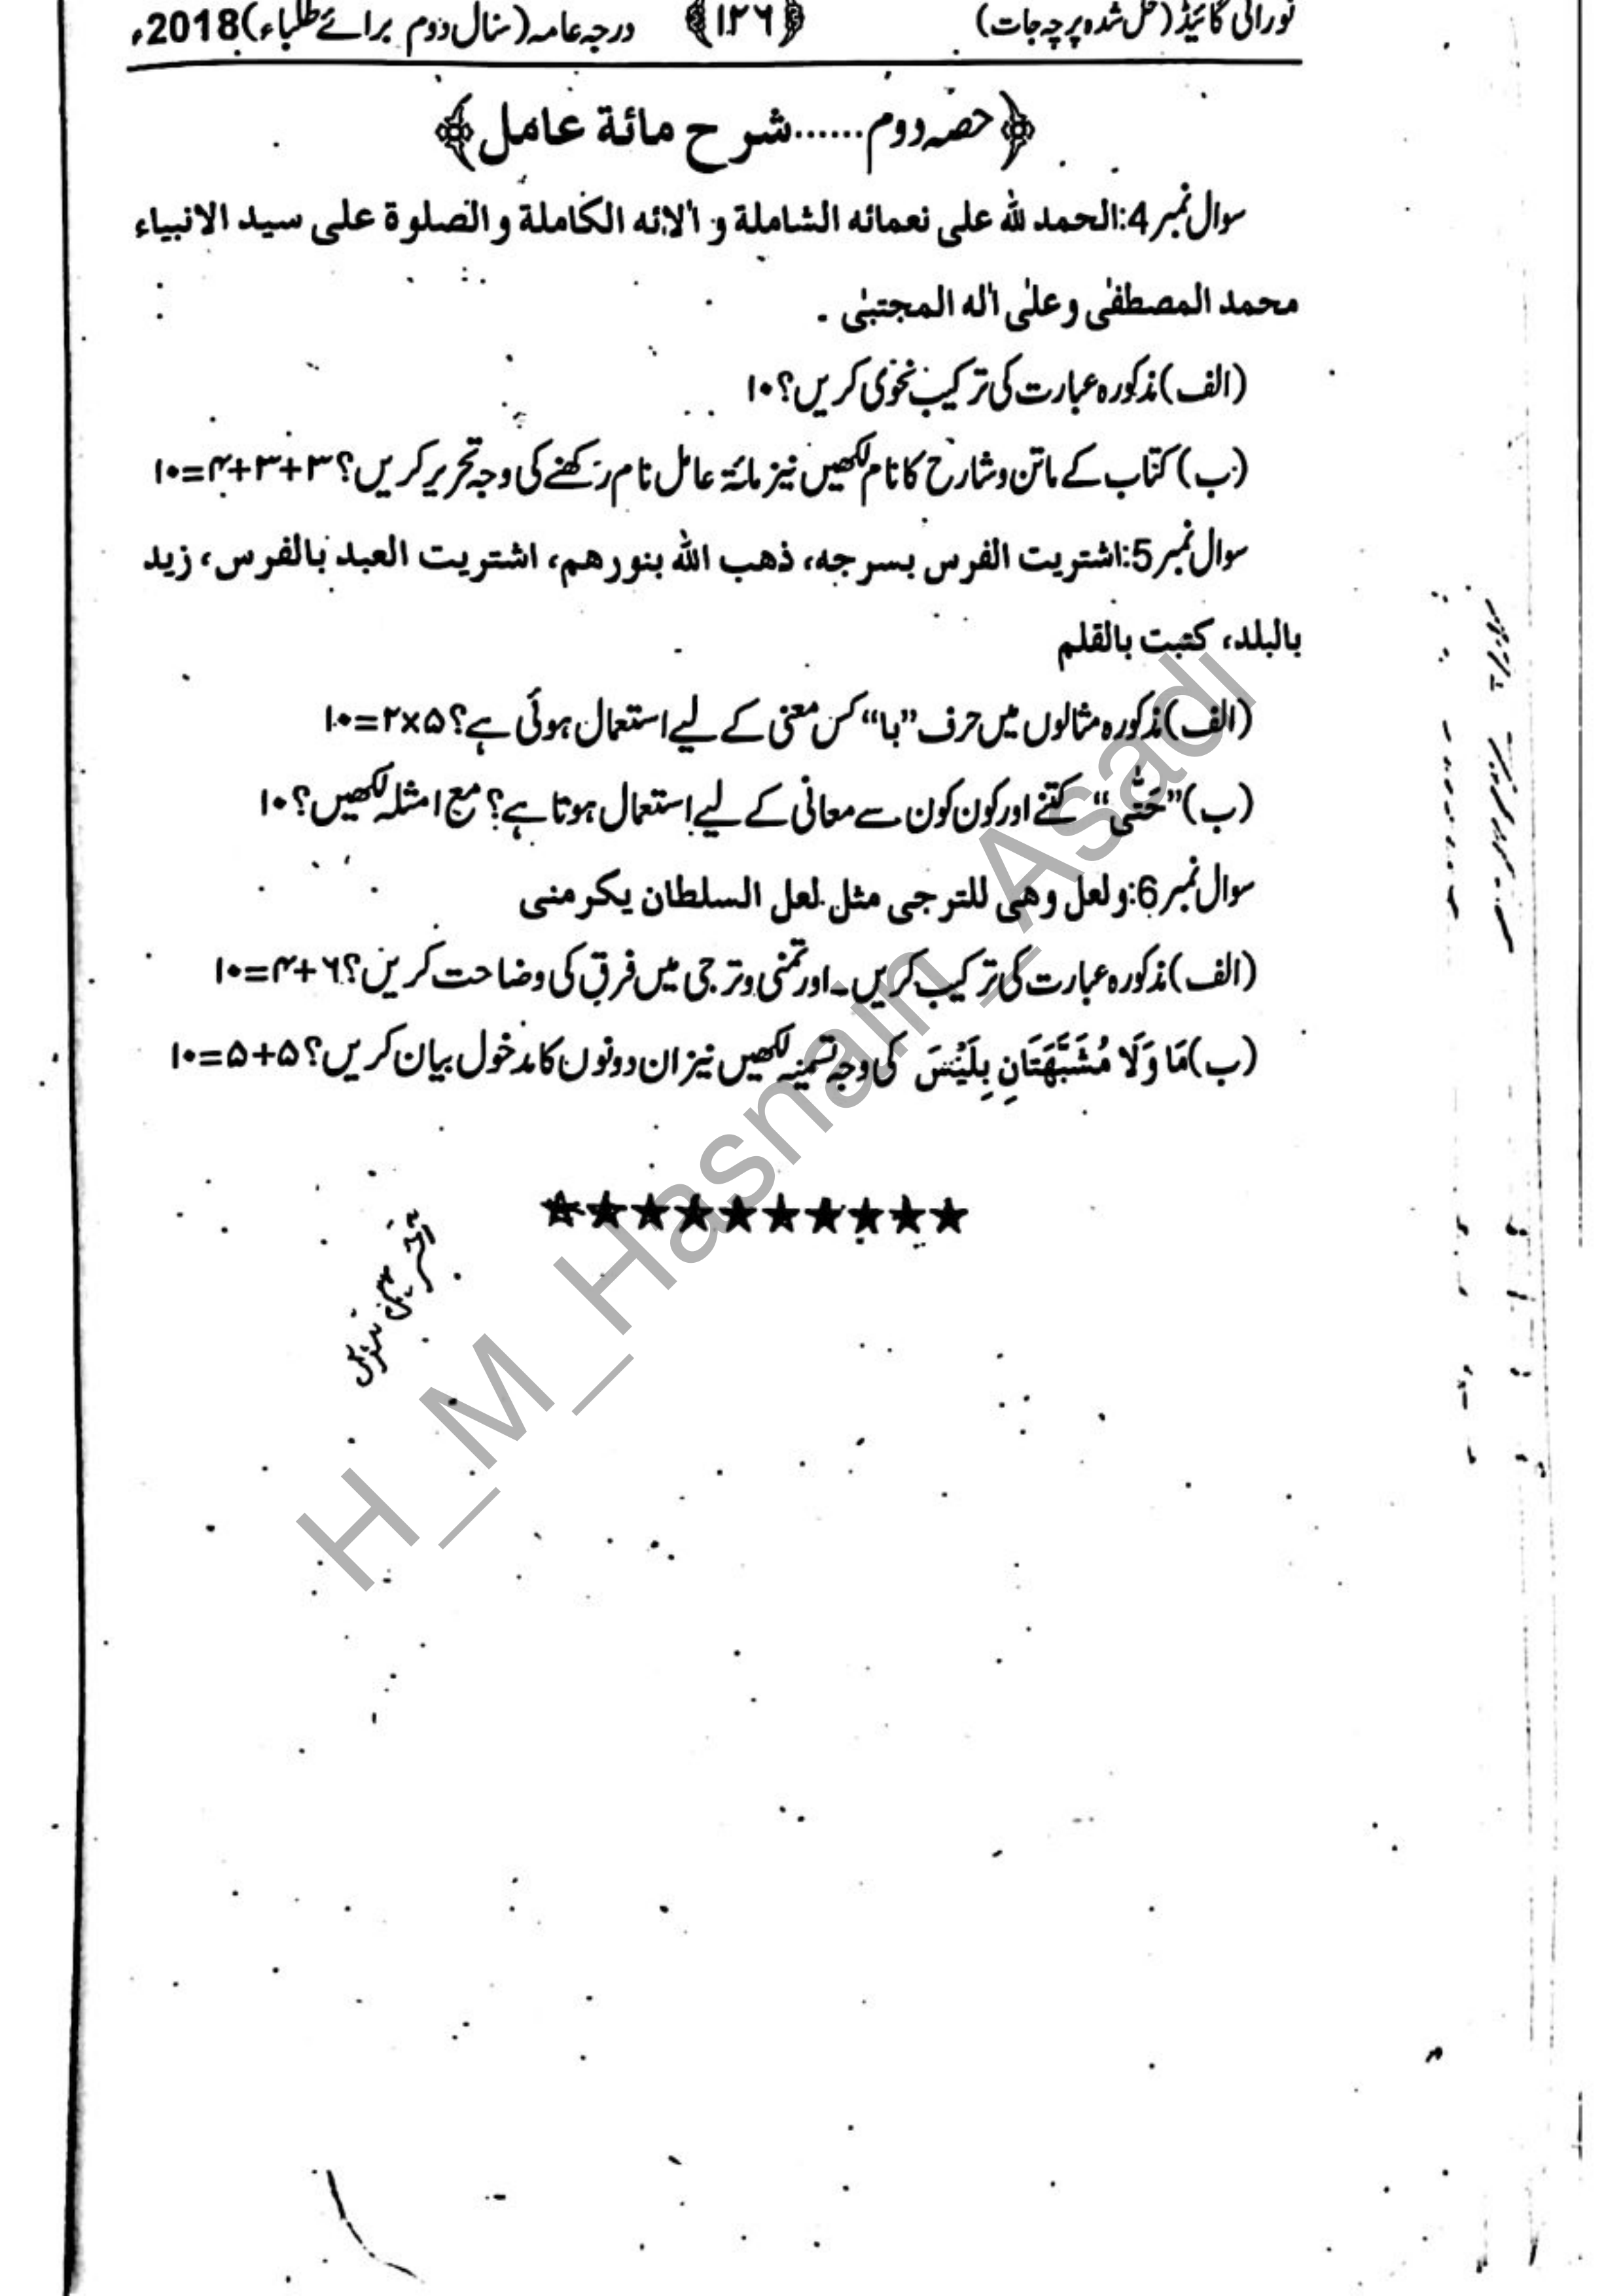 نورانی گائیڈ (حل شدہ پرچہ جات) ﴿۱۲۶﴾ درجہ عامہ (سال دوم برائے طلباء) 2018ء
﴿حصہ دوم......شرح مائة عامل﴾
سوال نمبر 4:الحمد لله علی نعمائه الشاملة و اٰلائه الكاملة و الصلوة علی سيد الانبياء
محمد المصطفٰی و علٰی اٰله المجتبٰی ۔
(الف) مذکورہ عبارت کی ترکیب نحوی کریں؟ ۱۰
(ب) کتاب کے ماتن و شارح کا نام لکھیں نیز مائۃ عامل نام رکھنے کی وجہ تحریر کریں؟ ۳+۳+۴=۱۰
سوال نمبر 5:اشتريت الفرس بسرجه، ذهب الله بنورهم، اشتريت العبد بالفرس، زيد
بالبلد، كتبت بالقلم
(الف) مذکورہ مثالوں میں حرف ”با“ کس معنی کے لیے استعمال ہوئی ہے؟ ۵×۲=۱۰
(ب) ”حَتّٰی“ کتنے اور کون کون سے معانی کے لیے استعمال ہوتا ہے؟ مع امثلہ لکھیں؟ ۱۰
سوال نمبر 6:و لعل وهی للترجی مثل لعل السلطان يكرمنی
(الف) مذکورہ عبارت کی ترکیب کریں۔ اور تمنی و ترجی میں فرق کی وضاحت کریں؟ ۶+۴=۱۰
(ب) مَا وَلَا مُشَبَّهَتَانِ بِلَيْسَ کی وجہ تسمیہ لکھیں نیز ان دونوں کا مدخول بیان کریں؟ ۵+۵=۱۰
★★★★★★★★★★
H_M_Hasnain_Asadi